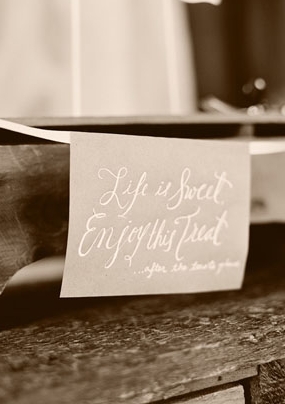 Life is Sweet
Enjoy this Treat
...after the toasts please